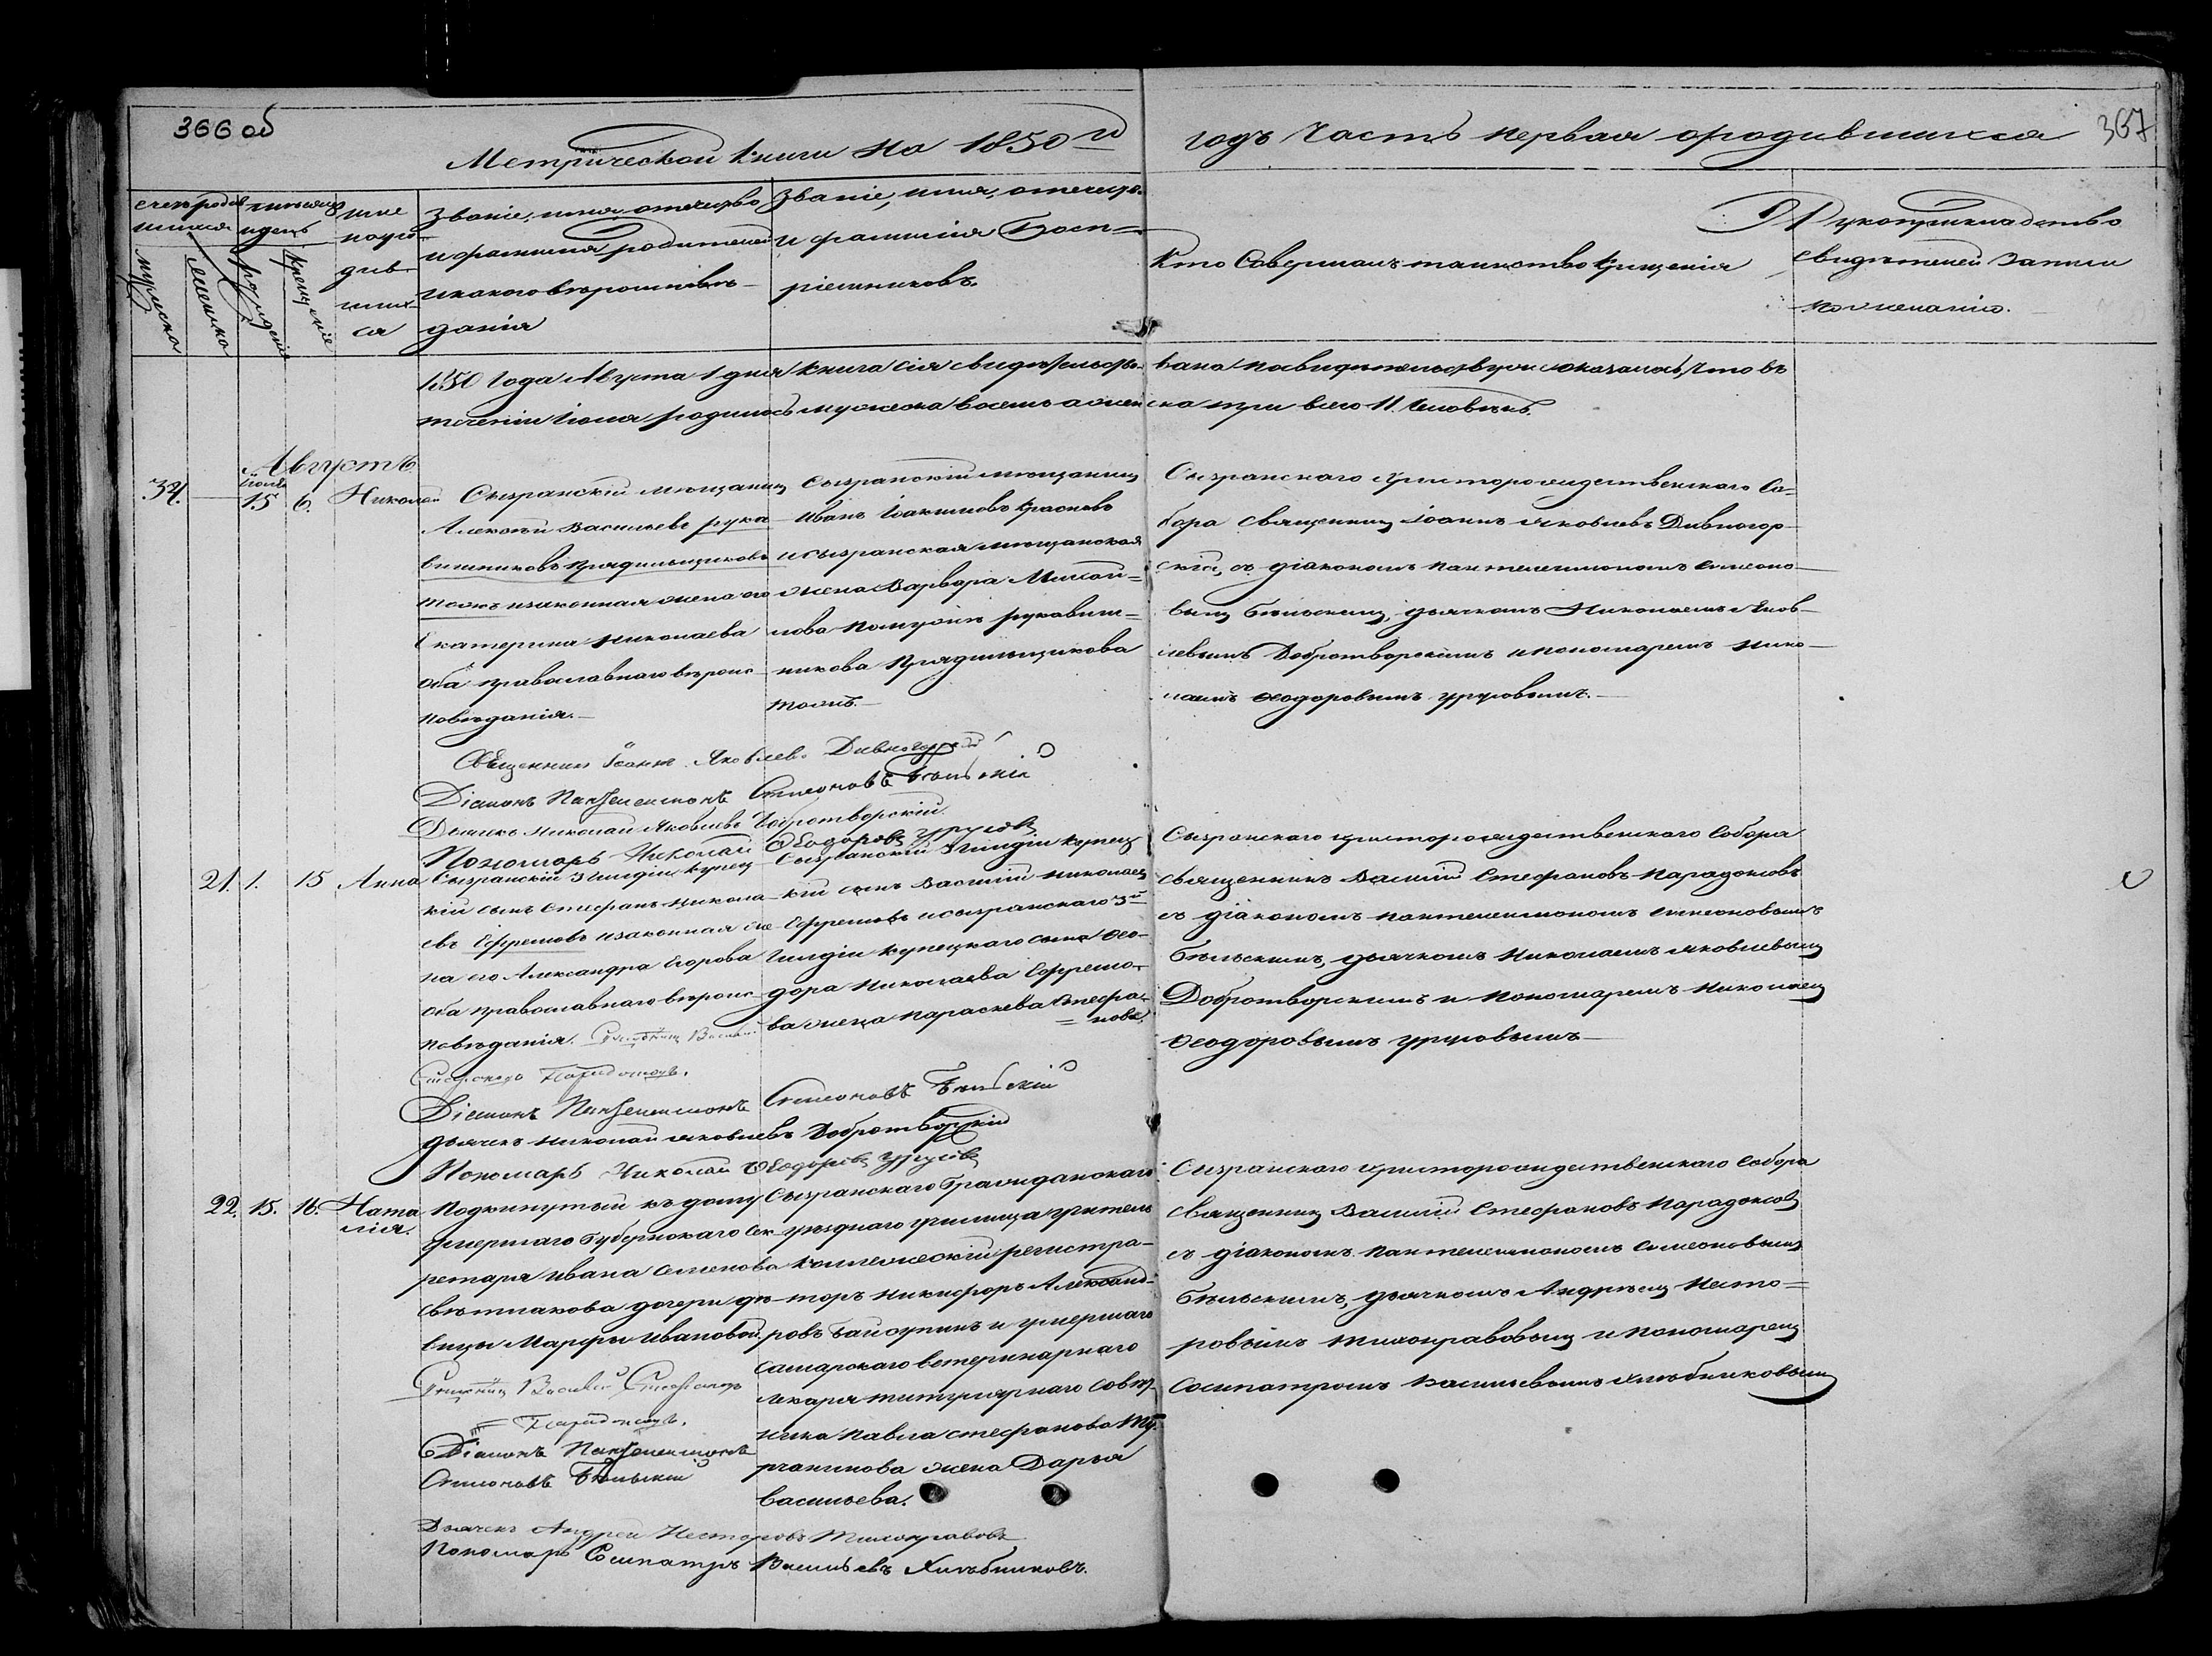 366 об
Метрической книги на 1850 й
годъ Часть первая ородившихся
367
счетъ родив
шихся
мужеска
женска
мѣсяцъ
и день
рожденія
крещенія
имя
народ
див
ших
ся
Званіе, имя, отчество
и фамилія родителей
и какого вѣроисповѣ-
данія
Званіе, имя, отчество
и фамилія Восп=
ріемниковъ.
Кто Совершалъ таинство Крещенія
Рукоприкладство
свидѣтелей записи
по желанію.
1850 Года Августа 1 дня книга сія свидѣтельство-
вана по свидѣтельству оказалось, что въ
теченіи Іюля родилось мужеска восемь а жен
ска три всего 11. Человѣкъ.
Августъ
34.
Іюля
15
6.
Николай
Сызранскій мѣщанинъ
Алексѣй Васильевъ рука
вишниковъ Прядильщиковъ
тожъ и законная жена его
Екатерина Николаева
оба православнаго вѣроис
повѣданія.-
Сызранскій мѣщанинъ
Иванъ Іоакимовъ Красновъ
и сызранская мѣщанская
жена Варвара Михай=
лова по мужѣ рукавиш=
никова Прядильщикова
тожъ.-
Сызранскаго Христорождественскаго Со=
бора священникъ Іоаннъ Яковлевъ Дивногор-
скій, съ діакономъ Пантелеимономъ Симеоно-
вымъ Бѣльскимъ, дьячкомъ Николаемъ Яков-
левымъ Добротворскимъ и пономаремъ Нико-
лаемъ Ѳеодоровымъ Урусовымъ.-
Священникъ Іоаннъ Яковлевъ Дивногорскій
Діаконъ Пантелеимонъ Симеоновъ Бѣльскій
Дьячекъ Николай Яковлевъ Добротворскій
Пономарь Николай Ѳеодоровъ Урусовъ
21.
1.
15
Анна
Сызранскій 3 Гильдіи купец
кій сынъ Стефанъ Никола
евъ Ефремовъ и законная же
на его Александра Егорова
оба православнаго вѣроис
повѣданія.
Сызранскій 3 Гильдіи Купец
кій сынъ Василій Николаевъ
Ефремовъ и сызранскаго 3й
Гильдіи Купецкаго сына Ѳео-
дора Николаева Ефремо-
ва жена Параскева Стефа-
=нова.
Сызранскаго христорождественскаго Собора
священникъ Василій Стефановъ Парадоксовъ
съ діакономъ Пантелеимономъ Симеоновымъ
Бѣльскимъ, дьячкомъ Николаемъ Яковлевымъ
Добротворскимъ и Пономаремъ Николаемъ
Ѳеодоровымъ Урусовымъ-
Священникъ Василій
Стефановъ Парадоксовъ.
Діаконъ Пантелеимонъ Симеоновъ Бѣльскій
дьячекъ Николай Яковлевъ Добротворскій
Пономарь Николай Ѳеодоровъ Урусовъ
22.
15.
16.
Ната
лія.
Подкинутый къ дому
умершаго Губернскаго сек
ретаря Ивана Семенова
Свѣтлакова дочери дѣ
вицы Марфы Ивановой.
Сызранскаго Гражданскаго
уѣзднаго училища учитель
Коллежскій регистра-
торъ Никифоръ Александ-
ровъ и умершаго
самарскаго ветеринарнаго
лекаря титулярнаго совѣт-
ника Павла Стефанова
жена Дарья
Васильева.
Сызранскаго христорождественскаго Собора
священникъ Василій Стефановъ Парадоксовъ
съ діакономъ Пантелеимономъ Симеоновымъ
Бѣльскимъ, дьячкомъ Андреемъ Несто=
ровымъ Тихонравовымъ и Пономаремъ
Сосипатромъ Васильевымъ Хлѣбниковымъ
Священникъ Василій Стефановъ
= Парадоксовъ.
Діаконъ Пантелеимонъ
Симеоновъ Бѣльскій
Дьячекъ Андрей Несторовъ Тихонравовъ
Пономарь Сосипатръ Васильевъ Хлѣбниковъ.